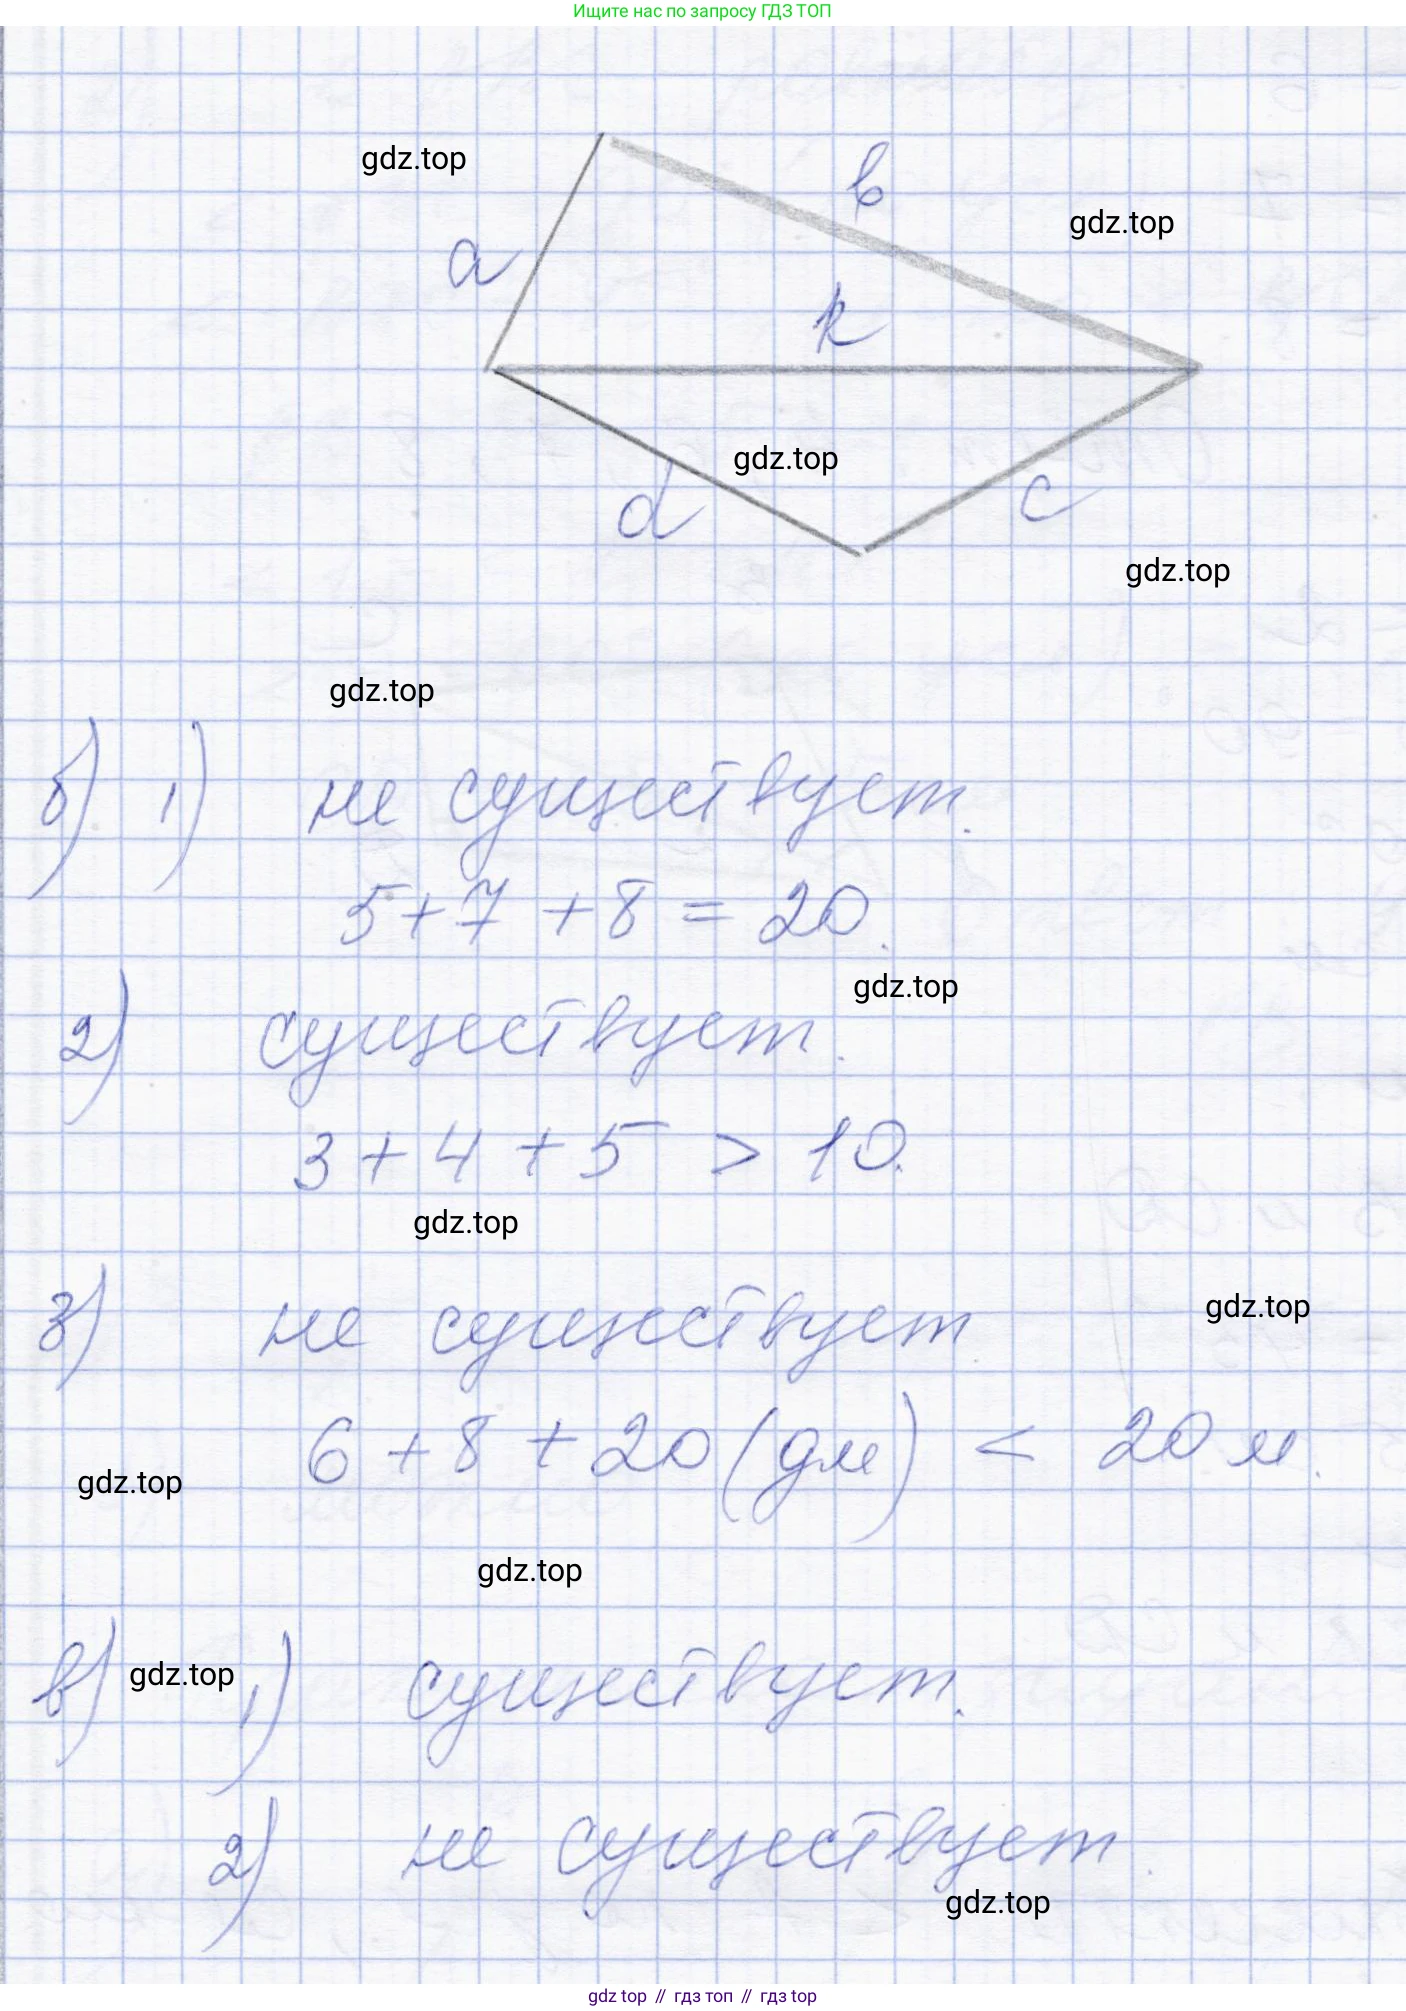 Ищите нас по запросу ГДЗ ТОП
gdz.top
в
gdz.top
a
k
gdz.top
d
c
gdz.top
gdz.top
б) 1) не существует.
5+7+8=20.
gdz.top
2) существует.
3+4+5 > 10.
gdz.top
3) не существует
gdz.top
6+8+20(дм) < 20 м.
gdz.top
gdz.top
в) 1) существует.
gdz.top
2) не существует.
gdz.top
gdz top // гдз топ // гдз top